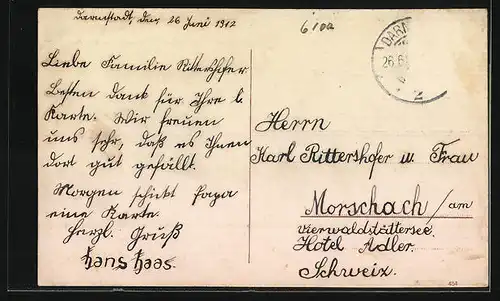 Darmstadt, den 26 Juni 1912
6/00
Liebe Familie Rittershofer
Besten dank für Ihre l.
Karte. Wir freuen
uns sehr, daß es Ihnen
dort gut gefällt.
Morgen schickt Papa
eine Karte.
Herzl. Gruß
Hans Haas.
DARM
26.6
2
Herrn
Karl Rittershofer u. Frau
Morschach/am
Vierwaldstättersee.
Hotel Adler.
Schweiz.